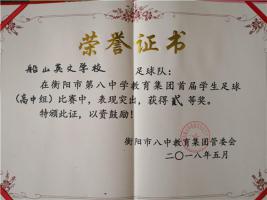 荣誉证书
船山英文学校 足球队：
在衡阳市第八中学教育集团首届学生足球
（高中组）比赛中，表现突出，获得贰等奖。
特颁此证，以资鼓励！
衡阳市八中教育集团管委会
二〇一八年五月